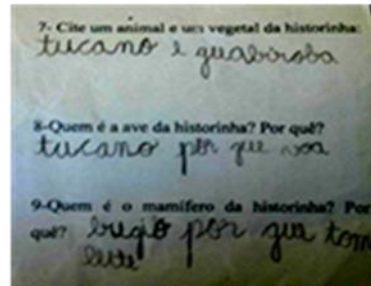 7- Cite um animal e um vegetal da historinha:
tucano e guabiroba
8-Quem é a ave da historinha? Por quê?
tucano por que voa
9-Quem é o mamífero da historinha? Por
quê? bugio por que tom
leite